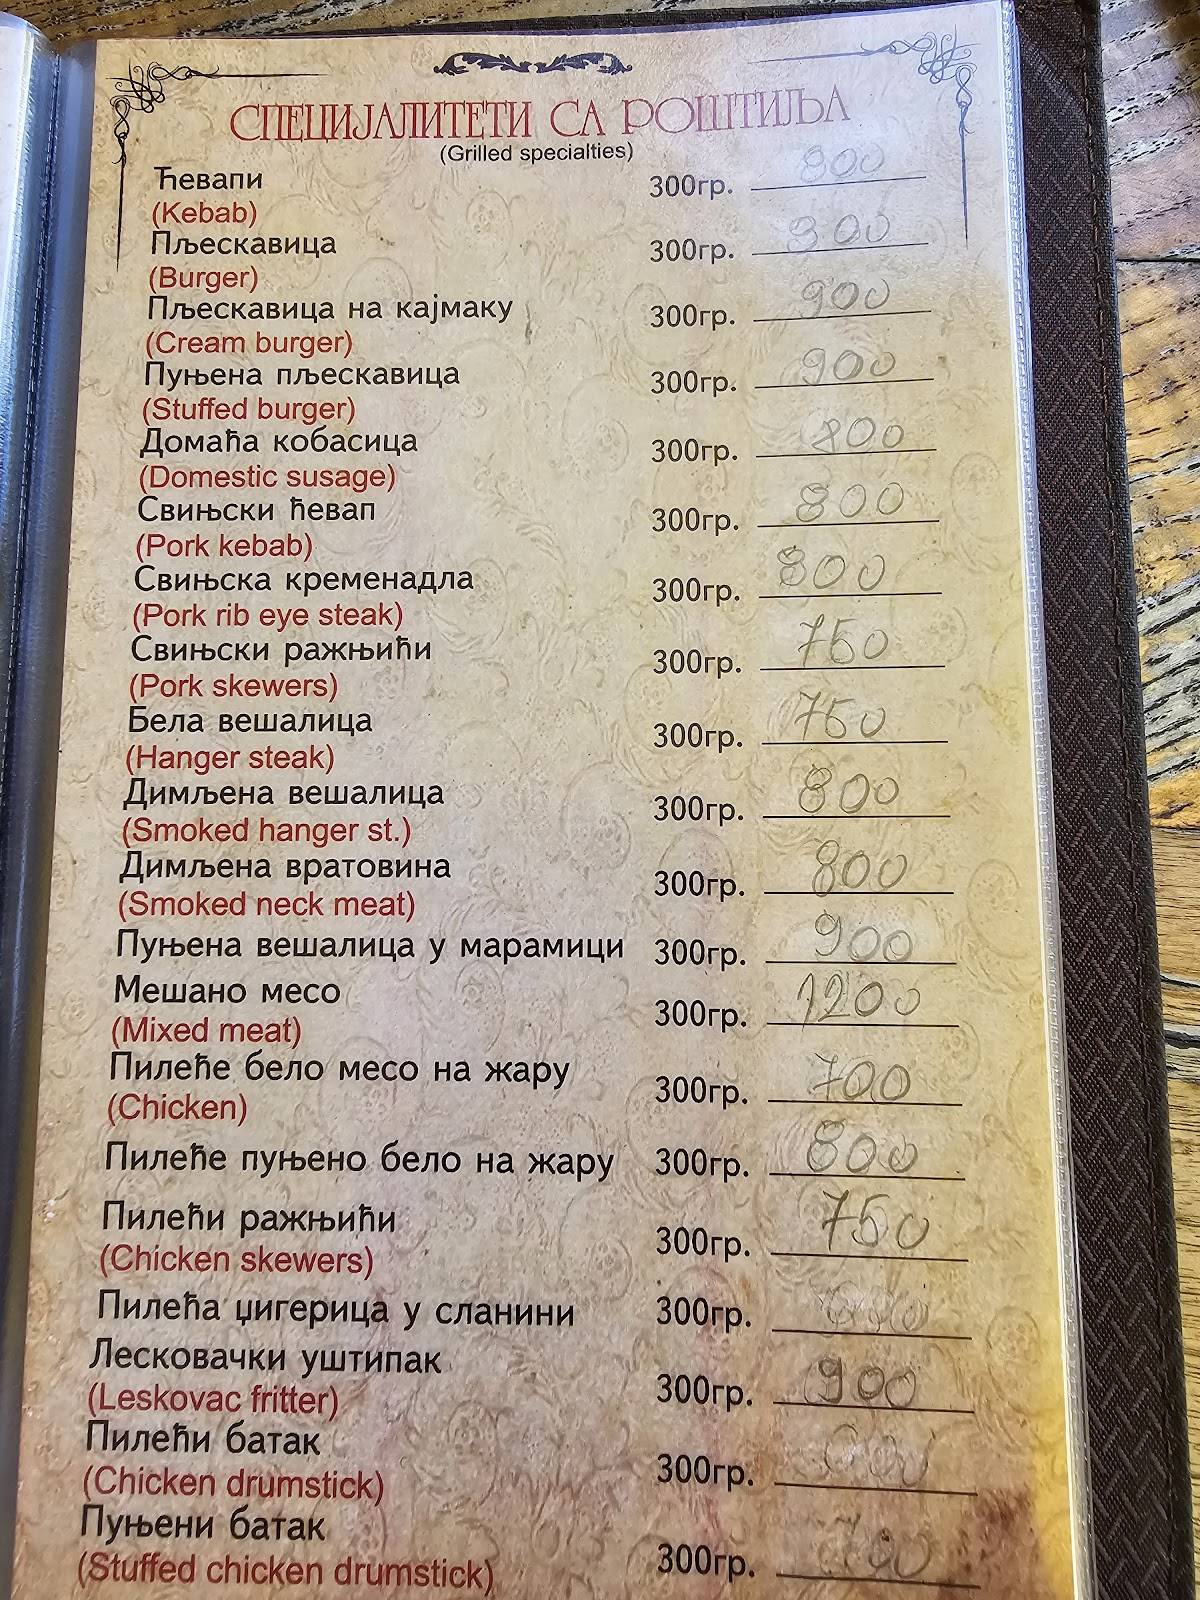 СПЕЦИЈАЛИТЕТИ СА РОШТИЉА
(Grilled specialties)
Ћевапи 300гр. 800
(Kebab)
Пљескавица 300гр. 800
(Burger)
Пљескавица на кајмаку 300гр. 900
(Cream burger)
Пуњена пљескавица 300гр. 900
(Stuffed burger)
Домаћа кобасица 300гр. 800
(Domestic susage)
Свињски ћевап 300гр. 800
(Pork kebab)
Свињска кременадла 300гр. 800
(Pork rib eye steak)
Свињски ражњићи 300гр. 750
(Pork skewers)
Бела вешалица 300гр. 750
(Hanger steak)
Димљена вешалица 300гр. 800
(Smoked hanger st.)
Димљена вратовина 300гр. 800
(Smoked neck meat)
Пуњена вешалица у марамици 300гр. 900
Мешано месо 300гр. 1200
(Mixed meat)
Пилеће бело месо на жару 300гр. 700
(Chicken)
Пилеће пуњено бело на жару 300гр. 800
Пилећи ражњићи 300гр. 750
(Chicken skewers)
Пилећа џигерица у сланини 300гр.
Лесковачки уштипак 300гр. 900
(Leskovac fritter)
Пилећи батак 300гр.
(Chicken drumstick)
Пуњени батак 300гр. 700
(Stuffed chicken drumstick)